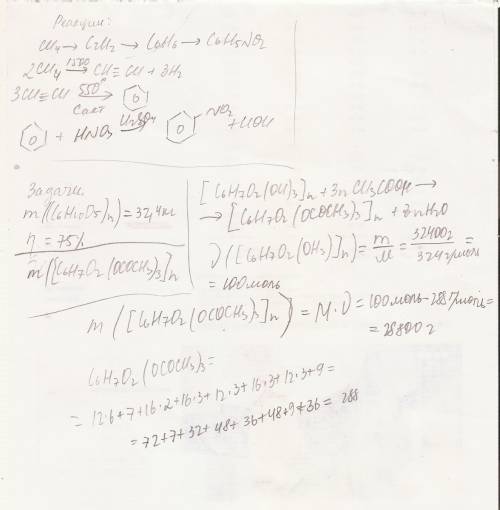 Реакции:
CH4 → C2H2 → C6H6 → C6H5NO2
2CH4 1500 → CH≡CH + 3H2
3CH≡CH 550° →
Cакт
+ HNO3 H2SO4 → NO2
Задачи
m((C6H10O5)n) = 32,4кг
η = 75%
m([C6H7O2(OCOCH3)3]n
[C6H7O2(OH)3]n + 3n CH3COOH →
→ [C6H7O2(OCOCH3)3]n + 3nH2O
ν([C6H7O2(OH)3]n) = m/M = 32400г/324г/моль =
= 100моль
m([C6H7O2(OCOCH3)3]n) = M·ν = 100моль·288г/моль =
= 28800г
C6H7O2(OCOCH3)3 =
= 12·6+7+16·2+16·3+12·3+16·3+12·3+9 =
= 72+7+32+48+36+48+9+36 = 288